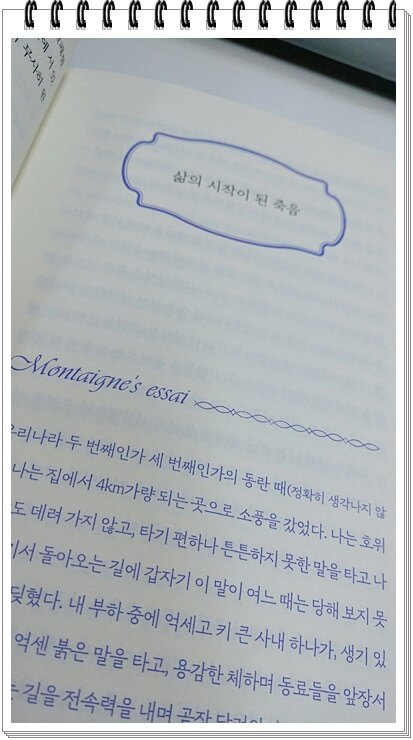 삶의 시작이 된 죽음
Montaigne's essai
우리나라 두 번째인가 세 번째인가의 동란 때(정확히 생각나지 않
나는 집에서 4km가량 되는 곳으로 소풍을 갔었다. 나는 호위
도 데려 가지 않고, 타기 편하나 튼튼하지 못한 말을 타고 나
서 돌아오는 길에 갑자기 이 말이 여느 때는 당해 보지 못
딪혔다. 내 부하 중에 억세고 키 큰 사내 하나가, 생기 있
억센 붉은 말을 타고, 용감한 체하며 동료들을 앞장서
길을 전속력을 내며 곧장